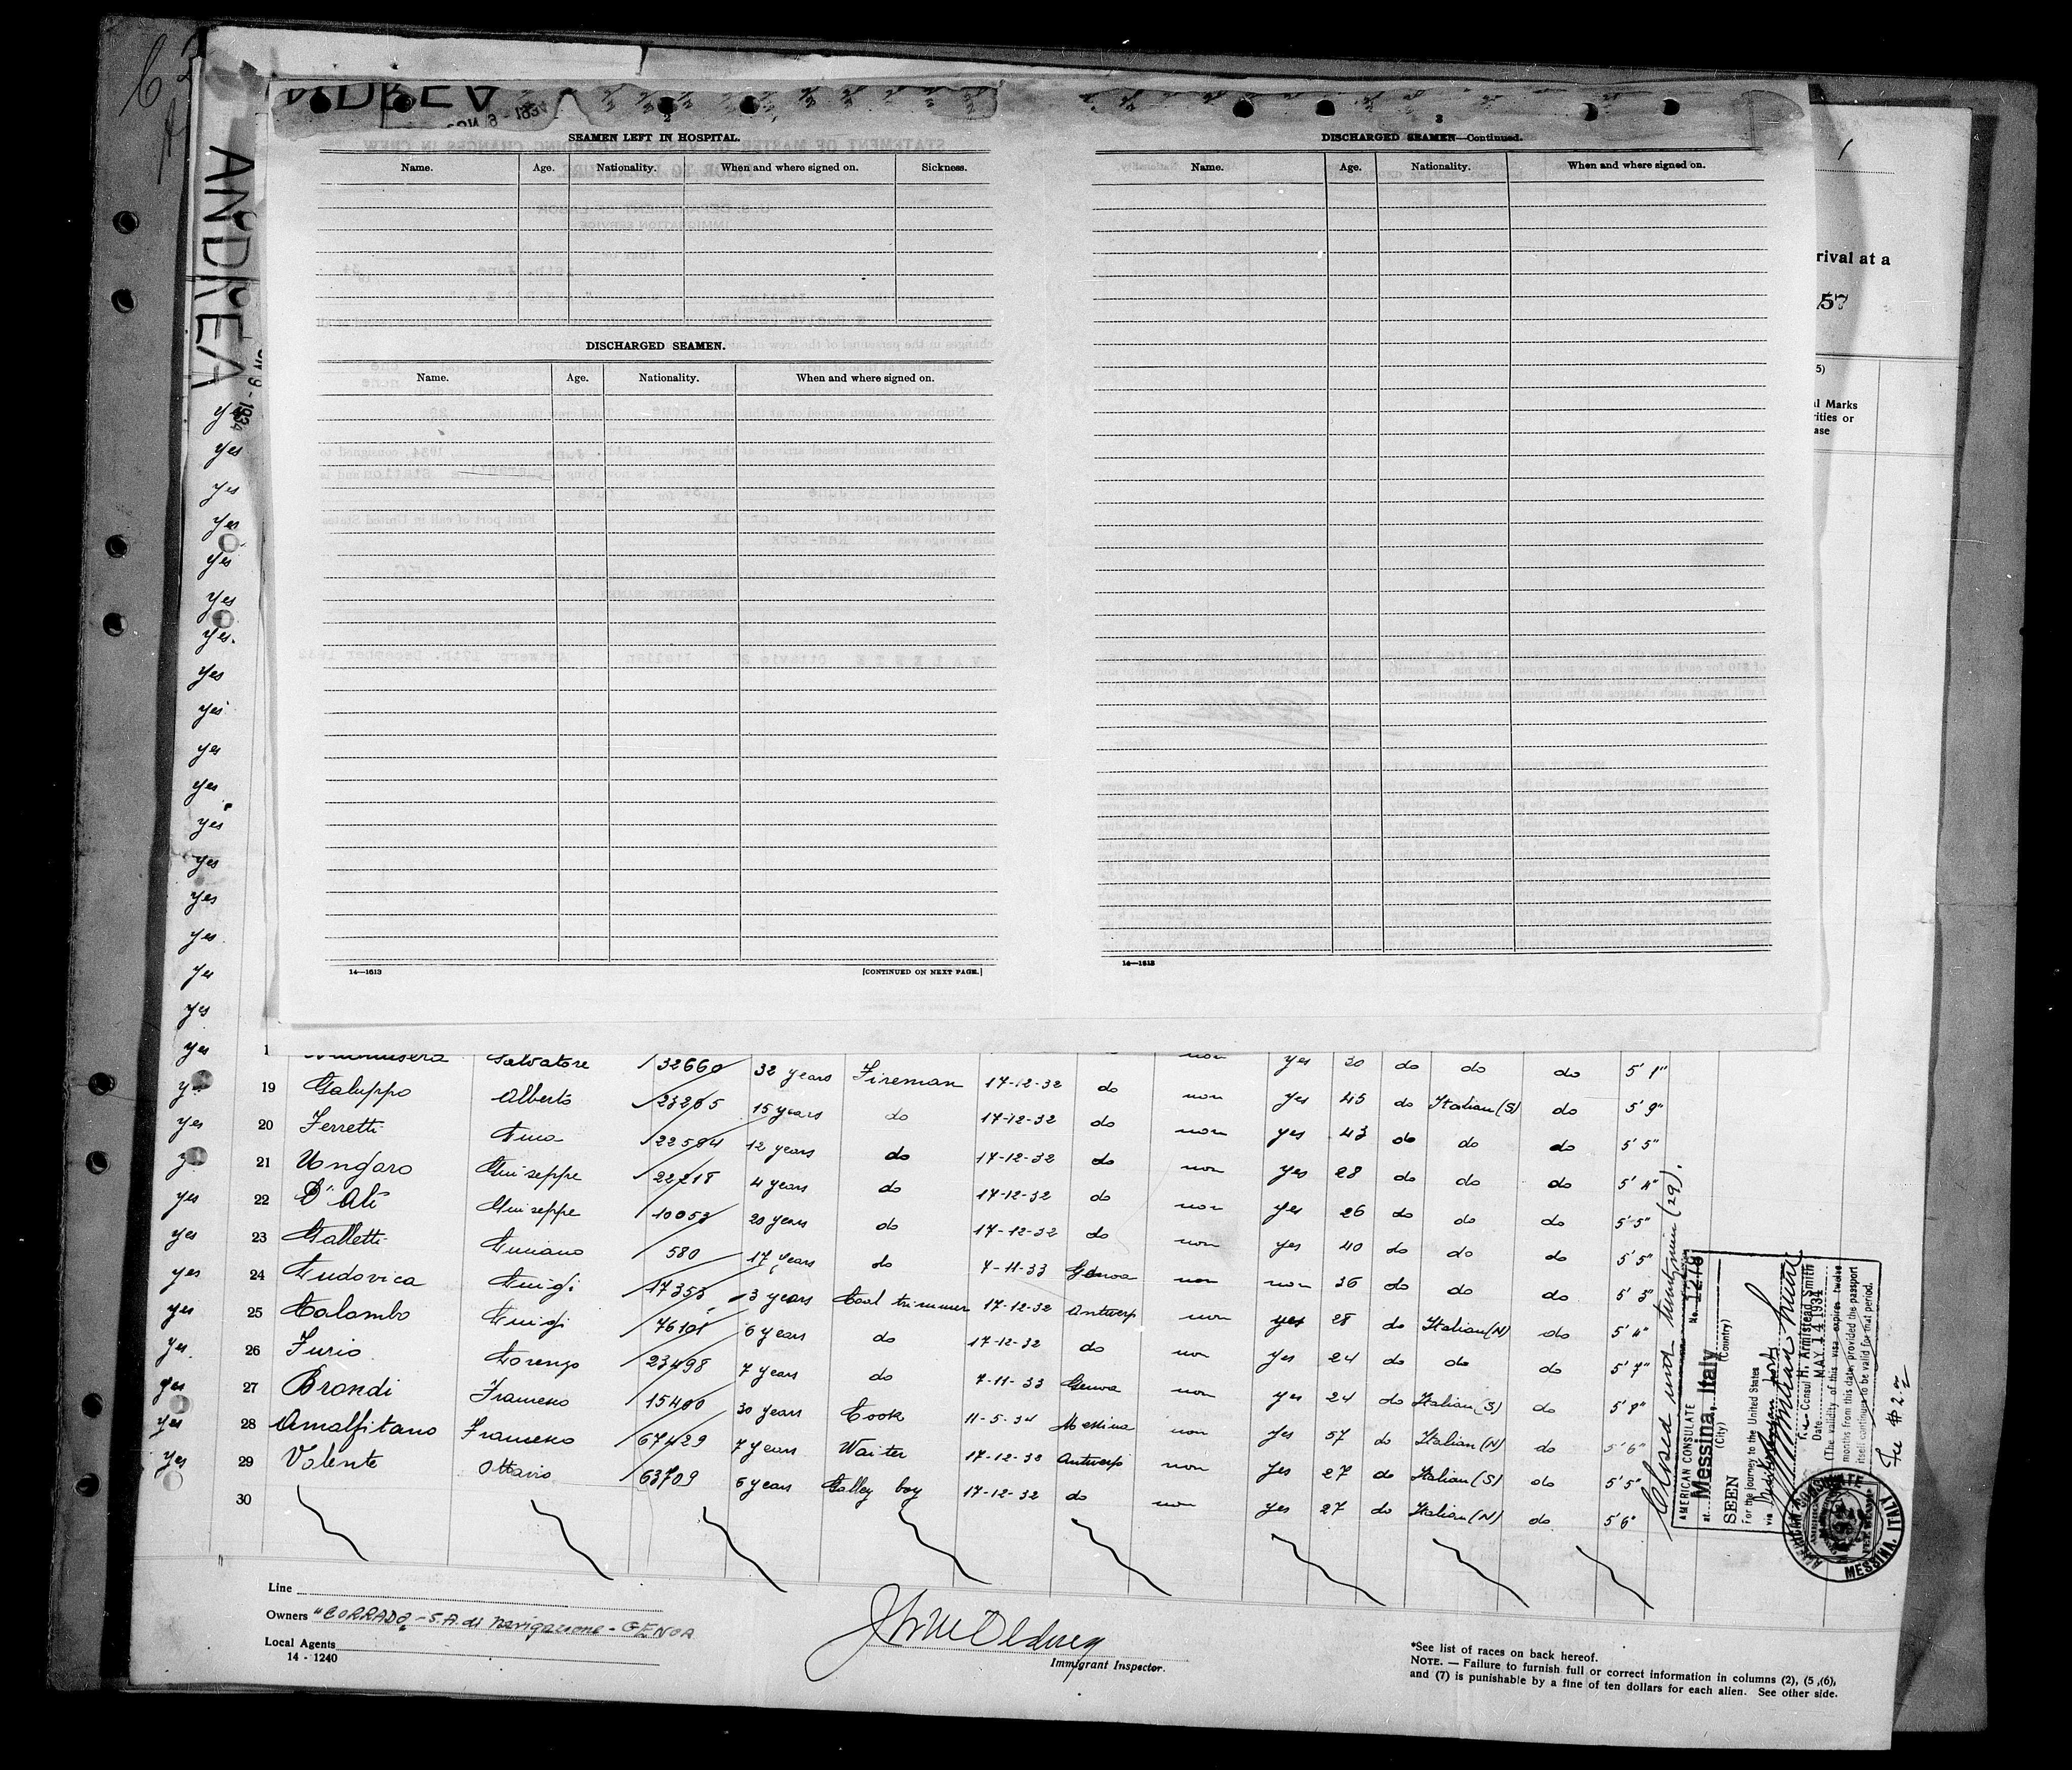 ANDREA
SEAMEN LEFT IN HOSPITAL.
Name. Age. Nationality. When and where signed on. Sickness.
DISCHARGED SEAMEN.
Name. Age. Nationality. When and where signed on.
14—1613 [CONTINUED ON NEXT PAGE.]
3
DISCHARGED SEAMEN—Continued.
Name. Age. Nationality. When and where signed on.
14—1613
rival at a
57
5)
al Marks
rities or
ase
yes
yes
yes
yes
yes
yes
yes.
yes
yes
yes
yes
yes
yes
yes
yes.
yes
yes
yes Salvatore 32660 32 years Fireman 17-12-32 do non yes 30 do do do 5' 1"
19 Galuppo Alberto 23265 15 years do 17-12-32 do non yes 45 do Italian (S) do 5' 9"
yes 20 Ferretti 22504 12 years do 17-12-32 do non yes 43 do do do 5' 5"
21 Ungaro Giuseppe 22218 4 years do 17-12-32 do non yes 28 do do do 5' 4"
yes 22 D'Ali Giuseppe 10053 20 years do 17-12-32 do non yes 26 do do do 5' 5"
yes 23 Galletti Luciano 580 17 years do 7-11-33 Genova non yes 40 do do do 5' 5"
yes 24 Ludovica Luigi 17353 3 years Coal trimmer 17-12-32 Antwerp non non 36 do do do 5' 3"
yes 25 Colombo Luigi 76101 6 years do 17-12-32 do non yes 28 do Italian (N) do 5' 4"
yes. 26 Furio Lorenzo 23498 7 years do 7-11-33 Genova non yes 24 do do do 5' 7"
yes 27 Brondi Francesco 15400 30 years Cook 11-5-34 Messina non yes 24 do Italian (S) do 5' 8"
yes 28 Amalfitano Francesco 67429 7 years Waiter 17-12-32 Antwerp non yes 57 do Italian (N) do 5' 6"
yes 29 Valente Ottavio 63709 6 years Galley boy 17-12-32 do non yes 27 do Italian (S) do 5' 5"
30 yes 27 do Italian (N) do 5' 6"
Closed under twentynine (29).
AMERICAN CONSULATE No. 1218
at Messina, Italy
(City) (Country)
SEEN
For the journey to the United States
via
Vice Consul H. Armistead Smith
Date MAY 14 1934
(The validity of this visa expires twelve
months from this date, provided the passport
itself continues to be valid for that period.
AMERICAN CONSULATE MESSINA, ITALY
Fee $ 2.
Line
Owners "CORRADO" - S.A. di Navigazione - GENOA
Local Agents
14 - 1240
Immigrant Inspector.
*See list of races on back hereof.
NOTE. — Failure to furnish full or correct information in columns (2), (5),(6),
and (7) is punishable by a fine of ten dollars for each alien. See other side.